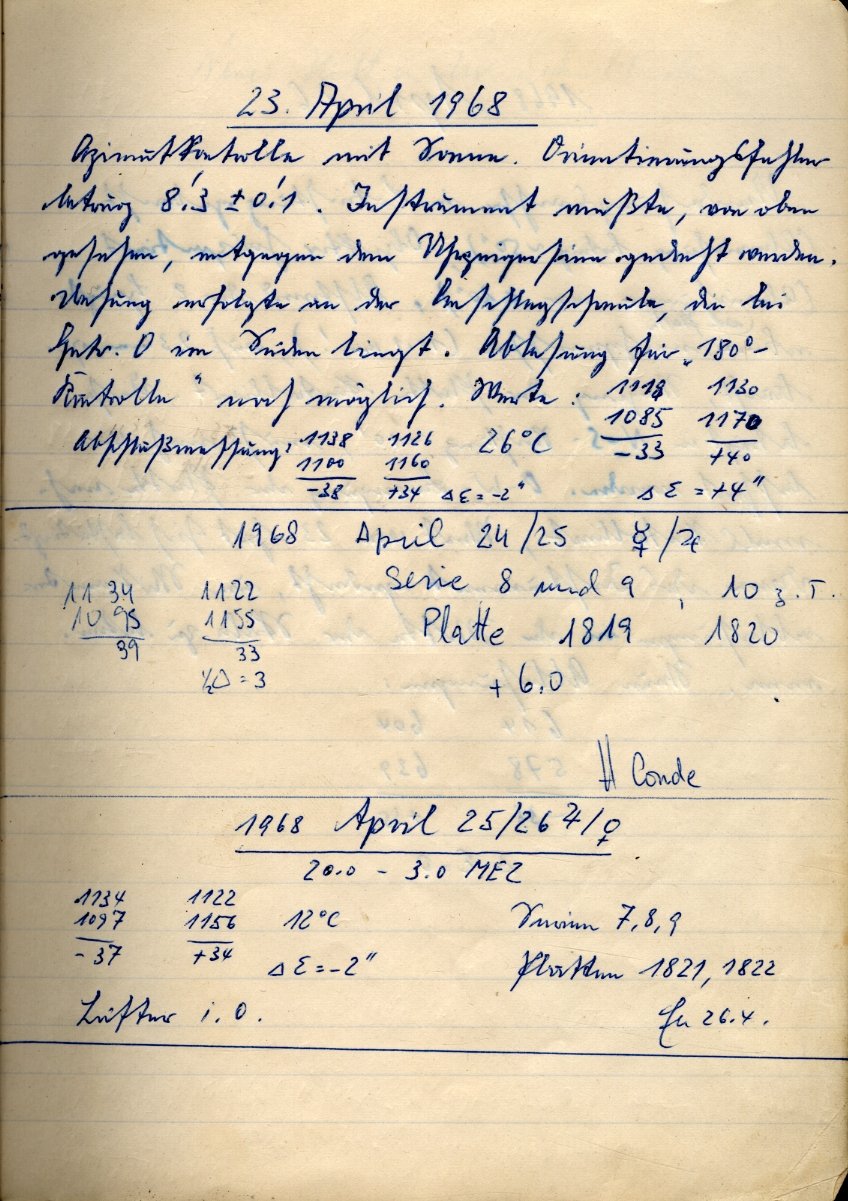 23. April 1968
Azimutkontrolle mit Sonne. Orientierungsfehler
betrug 8.′3 ± 0.′1. Instrument mußte, von oben
gesehen, entgegen dem Uhrzeigersinn gedreht werden.
Ablesung erfolgte an der Anschlagschraube, die bei
Getr. 0 im Süden liegt. Ablesung für „180°-
Kontrolle" noch möglich. Werte: 1118 1130
1085 1170
-33 +40
Abschlußmessung: 1138 1126 26°C
1100 1160
-38 +34 Δ Ɛ = -2" Δ Ɛ = +4"
1968 April 24/25 ☿/♃
1134 1122 Serie 8 und 9, 10 z.T.
1095 1155 Platte 1819 1820
39 33
½Δ = 3 + 6.0
H Conde
1968 April 25/26 ♃/♀
20.0 - 3.0 MEZ
1134 1122
1097 1156 12°C Serien 7,8,9
-37 +34 Δ Ɛ = -2" Platten 1821, 1822
Lüfter i.O. 26.4.